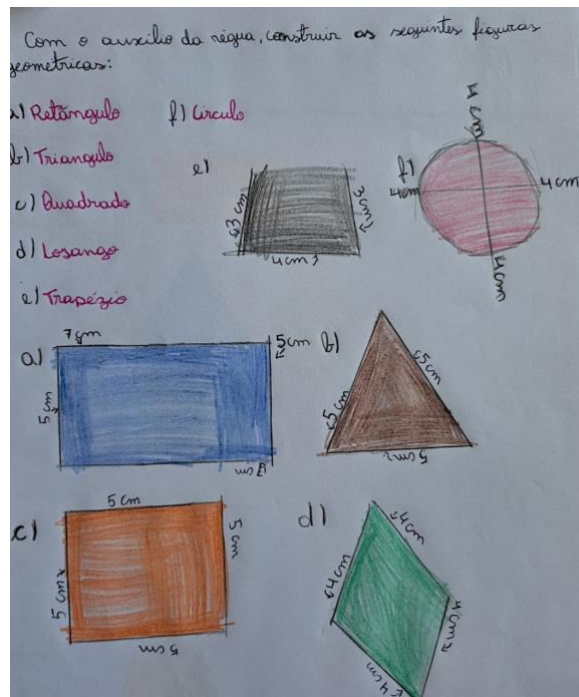 Com o auxilio da régua, construir as seguintes figuras
geometricas:
a) Retângulo f) Circulo
b) Triangulo
c) Quadrado
d) Losango
e) Trapézio
e)
3cm
3cm
4cm
f)
4 cm
4cm
4 cm
4cm
a)
7cm
5cm
5 cm
7cm
b)
5cm
5cm
5cm
c)
5 cm
5cm
5cm
5cm
d)
4cm
4cm
4cm
4cm